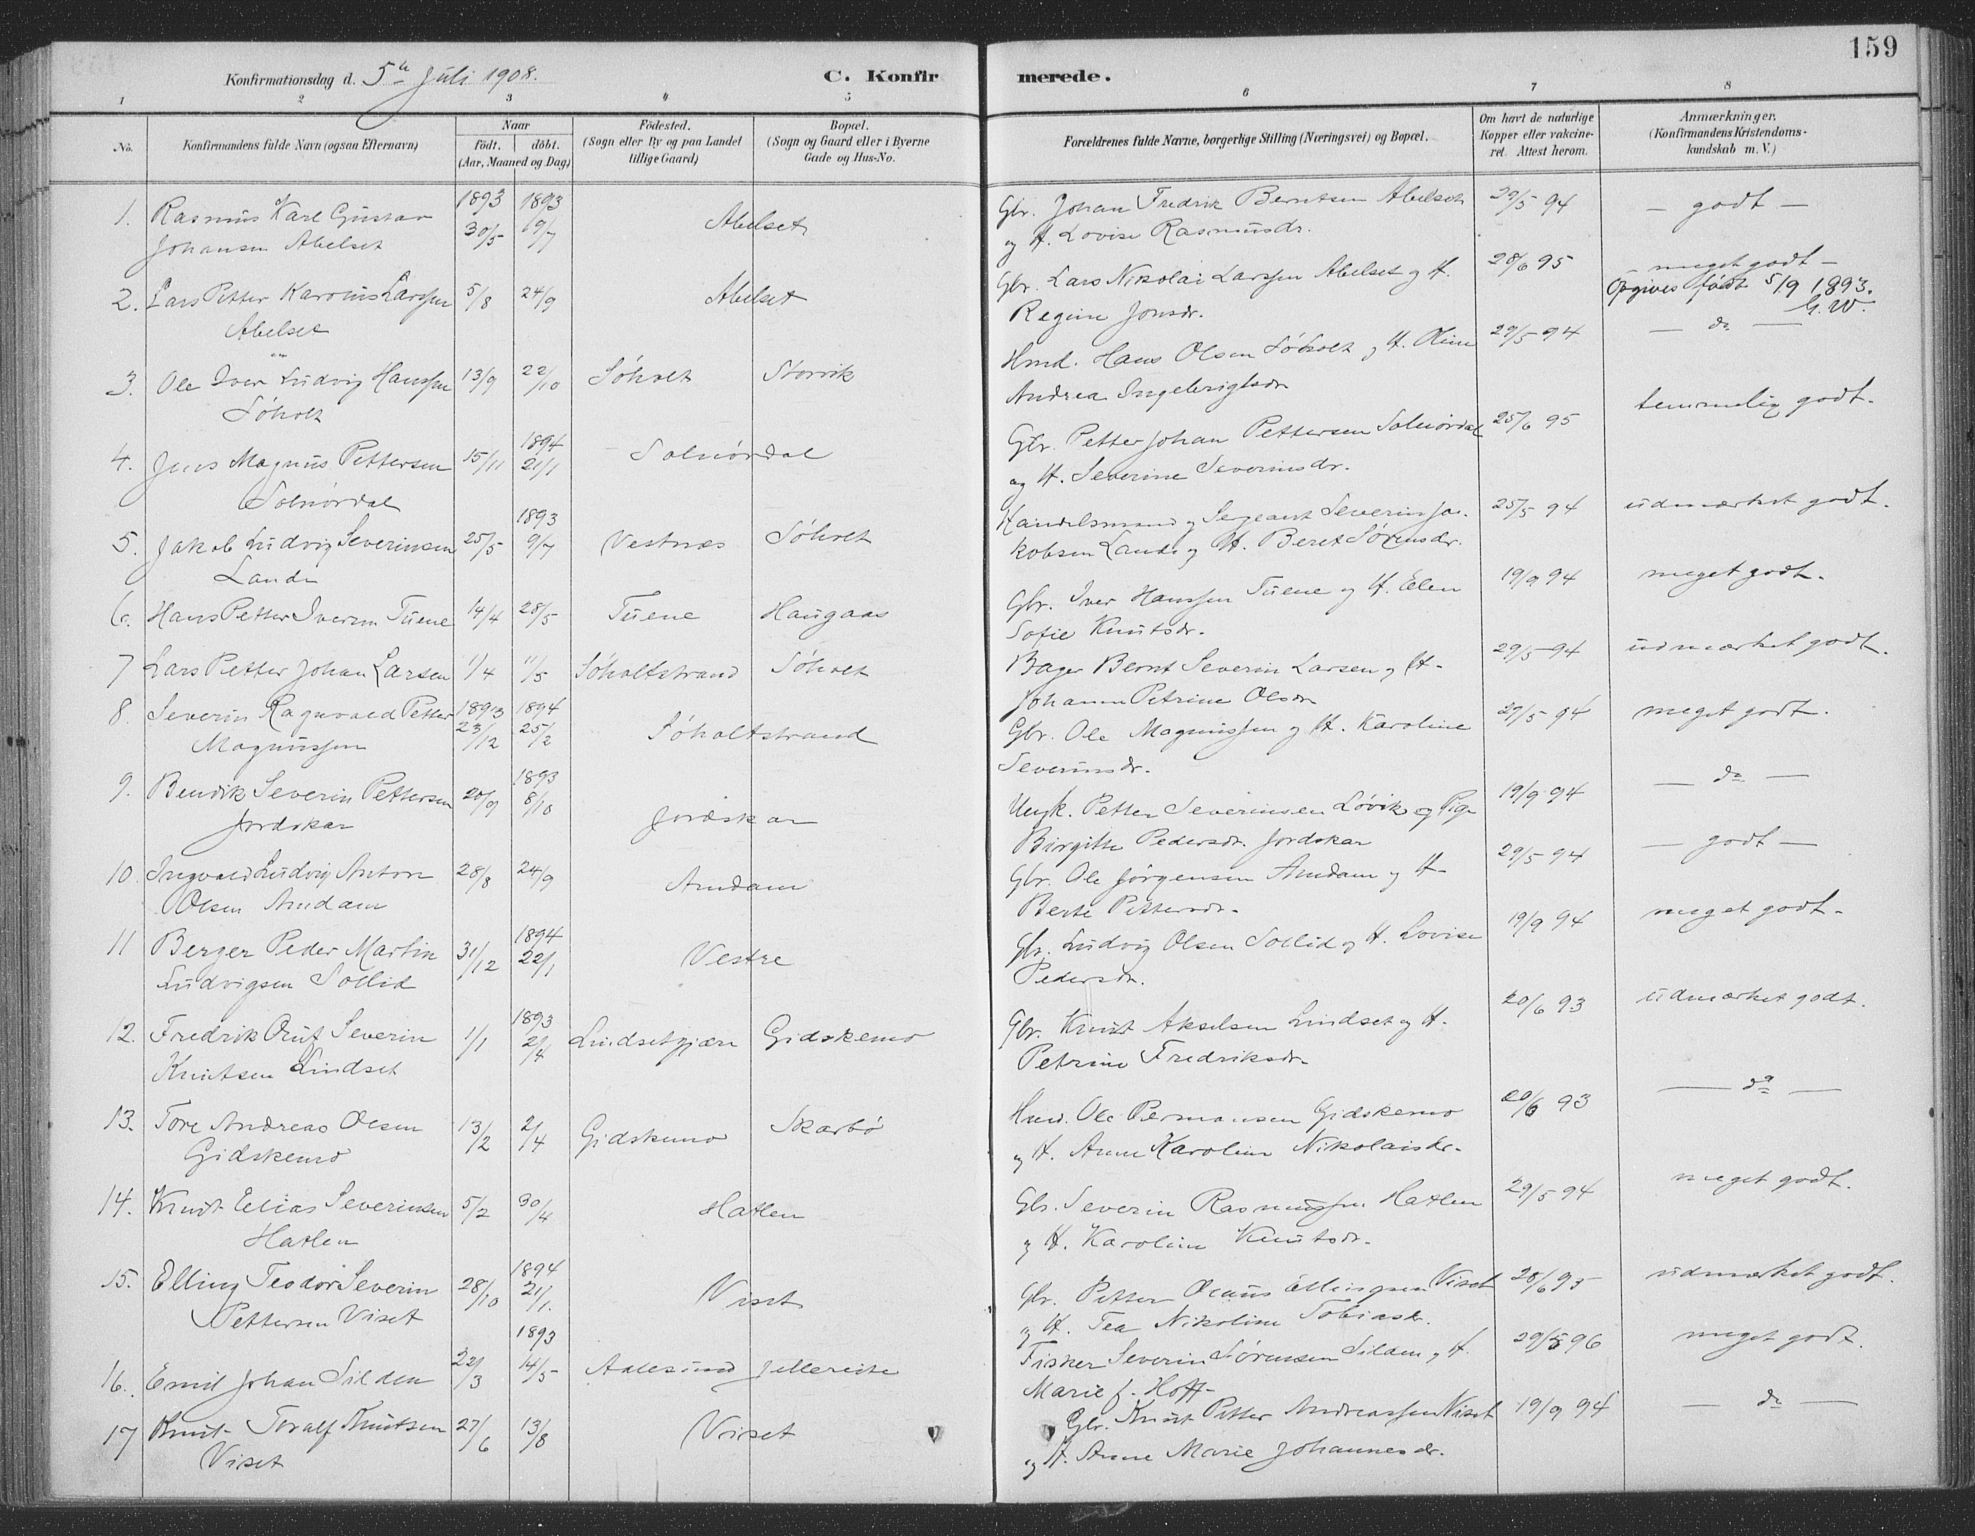 159
Konfirmationsdag d. 5te Juli 1908.
C. Konfirmerede.
1 2 3 4 5 6 7 8
No.
Konfirmandens fulde Navn (ogsaa Efternavn)
Naar
födt. döbt.
(Aar, Maaned og Dag)
Födested.
(Sogn eller By og paa Landet
tillige Gaard)
Bopæl.
(Sogn og Gaard eller i Byerne
Gade og Hus-No.
Forældrenes fulde Navne, borgerlige Stilling (Næringsvei) og Bopæl.
Om havt de naturlige
Kopper eller vakcine-
ret. Attest herom.
Anmærkninger.
(Konfirmandens Kristendoms-
kundskab m. V.)
1. Rasmus Karl Gustav 1893 30/5 1893 /7 Abelset Gbr. Johan Fredrik Berntsen Abelset 29/5 94 — godt —
Johansen Abelset og H. Lovise Rasmusdr.
2. Lars Petter Karolius Larssen 5/8 24/9 Abelset Gbr. Lars Nikolai Larssen Abelset og H. 28/6 95 meget godt —
Abelset Regine Jonsdr. Opgives født 5/9 1893.
G.W.
3. Ole Iver Ludvig Hanssen 13/9 22/10 Söholt Storvik Hmd. Hans Olsen Söholt og H. Oline 29/5 94 — do —
Söholt Andrea Ingebrigtsdr
4. Jens Magnus Pettersen 15/11 1894 21/1 Solnördal Gbr. Petter Johan Pettersen Solnördal 25/6 95 temmelig godt.
Solnördal og H. Severine Severinsdr.
5. Jakob Ludvig Severinsen 25/5 1893 9/7 Vestnæs Söholt Handelsmand og Sergeant Severin Ja- 25/5 94 udmærket godt.
Lande kobsen Lande og H. Beret Sörensdr.
6. Hans Petter Iversen Tuene 14/4 28/5 Tuene Haugaas Gbr. Iver Hanssen Tuene og H. Elen 19/9 94 meget godt.
Sofie Knutsdr.
7 Lars Petter Johan Larsen 1/4 11/5 Söholtstrand Söholt Bager Bernt Severin Larsen og H. 29/5 94 udmærket godt.
Johanne Petrine Olsdr
8. Severin Ragnvald Petter 1893 23/12 1894 25/2 Söholtstrand Gbr. Ole Magnussen og H. Karoline 29/5 94 meget godt.
Magnussen Severinsdr.
9. Bendik Severin Pettersen 20/9 1893 8/10 Jordskar Ungk. Petter Severinsen Lövik og Pige 19/9 94 — do —
Jordskar Birgitte Pedersdr. Jordskar
10. Ingvald Ludvig Anton 28/8 24/9 Amdam Gbr. Ole Jörgensen Amdam og H. 29/5 94 — godt —
Olsen Amdam Berte Pettersdr.
11 Berger Peder Martin 31/12 1894 22/1 Vestre Gbr. Ludvig Olsen Sollid og H. Lovise 19/9 94 meget godt.
Ludvigsen Sollid Pedersdr.
12. Fredrik Oluf Severin 1/1 1893 2/4 Lindsetgjære Gidskemo Gbr. Knut Akselsen Lindset og H. 20/6 93 udmærket godt.
Knutsen Lindset Petrine Fredriksdr.
13. Tore Andreas Olsen 13/2 2/4 Gidskemo Skarbö Hmd. Ole Permansen Gidskemo 20/6 93 — do —
Gidskemo og H. Anne Karoline Nikolaisdr.
14. Knut Elias Severinsen 5/2 30/4 Hatlen Gbr. Severin Rasmussen Hatlen 29/5 94 meget godt.
Hatlen og H. Karoline Knutsdr.
15. Elling Teodor Severin 28/10 1894 21/1. Viset Gbr. Petter Olaus Ellingsen Viset 28/6 95 udmærket godt.
Pettersen Viset og H. Tea Nikoline Tobiasdr.
16. Emil Johan Silden 22/3 1893 14/5 Aalesund Jellereite Fisker Severin Sörensen Silden og H. 29/5 96 meget godt.
Marie f. Hoff
17 Knut Toralf Knutsen 27/6 13/8 Viset Gbr. Knut Petter Andreassen Viset 19/9 94 — do —
Viset og H. Anne Marie Johannesdr.